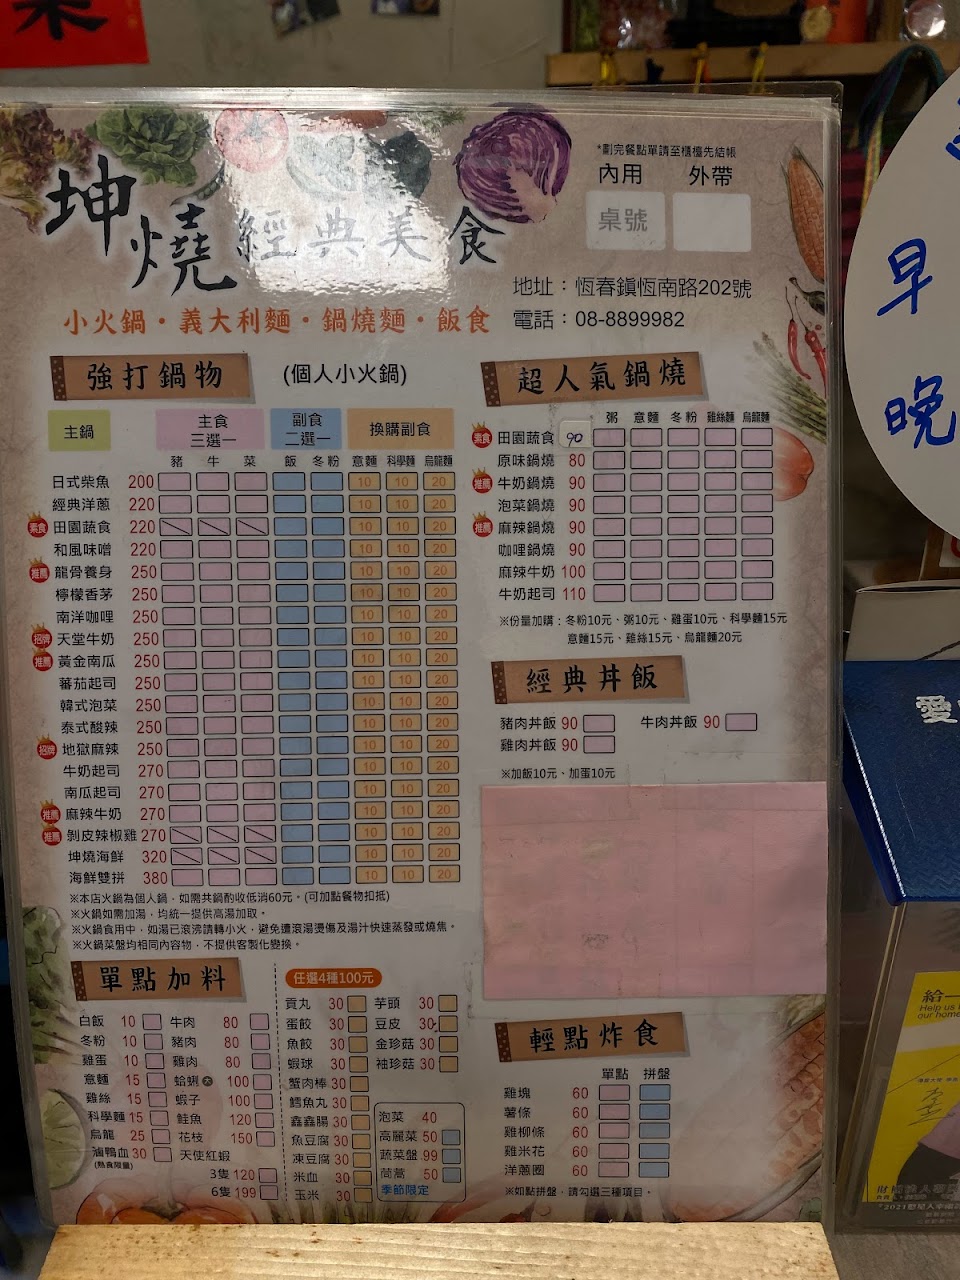 *劃完餐點單請至櫃檯先結帳
內用 外帶
桌號
坤燒 經典美食
地址：恆春鎮恆南路202號
小火鍋・義大利麵・鍋燒麵・飯食
電話：08-8899982
強打鍋物 (個人小火鍋)
主鍋 主食 三選一 副食 二選一 換購副食
豬 牛 菜 飯 冬粉 意麵 科學麵 烏龍麵
日式柴魚 200 10 10 20
經典洋蔥 220 10 10 20
素食 田園蔬食 220 10 10 20
和風味噌 220 10 10 20
推薦 龍骨養身 250 10 10 20
檸檬香茅 250 10 10 20
南洋咖哩 250 10 10 20
招牌 天堂牛奶 250 10 10 20
推薦 黃金南瓜 250 10 10 20
蕃茄起司 250 10 10 20
韓式泡菜 250 10 10 20
泰式酸辣 250 10 10 20
招牌 地獄麻辣 250 10 10 20
牛奶起司 270 10 10 20
南瓜起司 270 10 10 20
推薦 麻辣牛奶 270 10 10 20
推薦 剝皮辣椒雞 270 10 10 20
坤燒海鮮 320 10 10 20
海鮮雙拼 380 10 10 20
※本店火鍋為個人鍋，如需共鍋酌收低消60元。(可加點餐物扣抵)
※火鍋如需加湯，均統一提供高湯加取。
※火鍋食用中，如湯已滾沸請轉小火，避免遭滾湯燙傷及湯汁快速蒸發或燒焦。
※火鍋菜盤均相同內容物，不提供客製化變換。
超人氣鍋燒
粥 意麵 冬粉 雞絲麵 烏龍麵
素食 田園蔬食 90
原味鍋燒 80
推薦 牛奶鍋燒 90
泡菜鍋燒 90
推薦 麻辣鍋燒 90
咖哩鍋燒 90
麻辣牛奶 100
牛奶起司 110
※份量加購：冬粉10元、粥10元、雞蛋10元、科學麵15元
意麵15元、雞絲15元、烏龍麵20元
經典丼飯
豬肉丼飯 90 牛肉丼飯 90
雞肉丼飯 90
※加飯10元、加蛋10元
單點加料
白飯 10 牛肉 80
冬粉 10 豬肉 80
雞蛋 10 雞肉 80
意麵 15 蛤蜊 大 100
雞絲 15 蝦子 100
科學麵 15 鮭魚 120
烏龍 25 花枝 150
鴨血 30 天使紅蝦
(熟食限量)
3隻 120
6隻 199
任選4種100元
貢丸 30 芋頭 30
蛋餃 30 豆皮 30
魚餃 30 金珍菇 30
蝦球 30 袖珍菇 30
蟹肉棒 30
鱈魚丸 30
鑫鑫腸 30
魚豆腐 30
凍豆腐 30
米血 30
玉米 30
泡菜 40
高麗菜 50
蔬菜盤 99
茼蒿 50
季節限定
輕點炸食
單點 拼盤
雞塊 60
薯條 60
雞柳條 60
雞米花 60
洋蔥圈 60
※如點拼盤，請勾選三種項目。
早
晚
愛
給一
Help us
our home